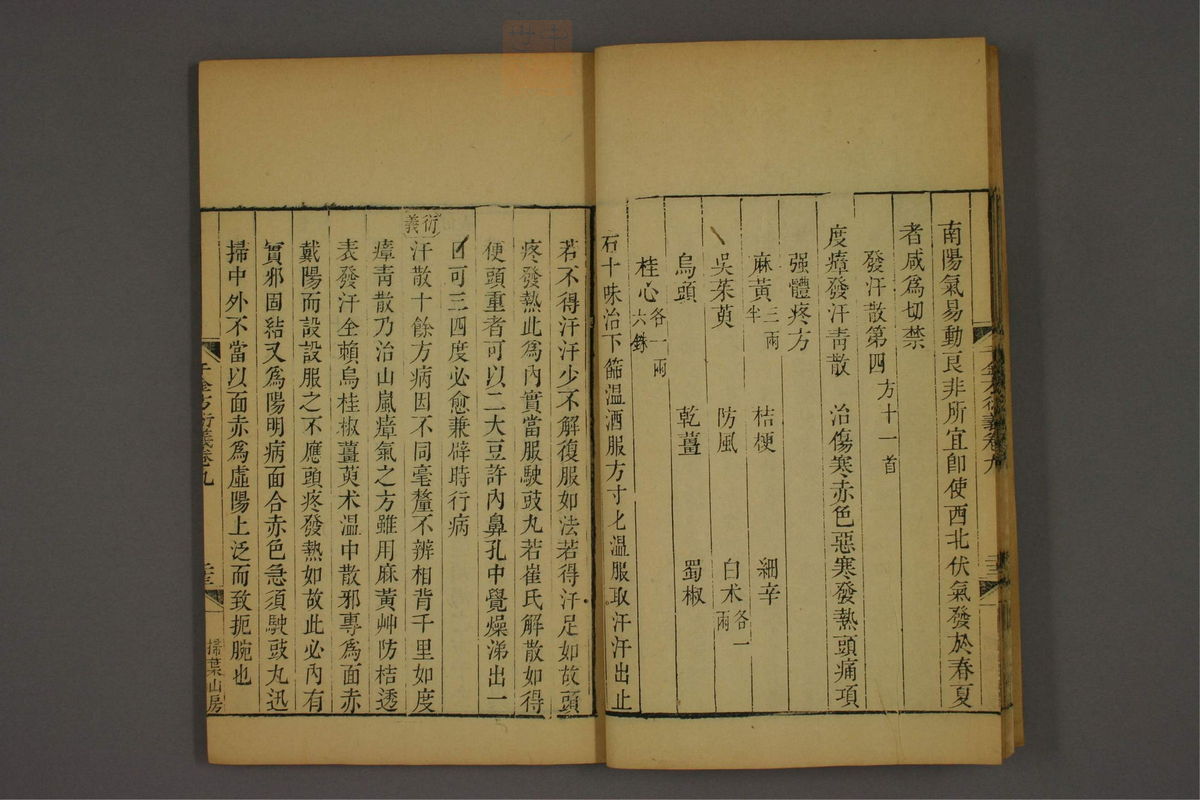 南陽氣易動良非所宜即使西北伏氣發於春夏
者咸爲切禁
發汗散第四 方十一首
度瘴發汗青散 治傷寒赤色惡寒發熱頭痛項
强體疼方
麻黃三兩半 桔梗 細辛
吳茱萸 防風 白术各一兩
烏頭 乾薑 蜀椒
桂心各一兩六銖
右十味治下篩溫酒服方寸匕溫服取汗汗出止
若不得汗汗少不解復服如法若得汗足如故頭
疼發熱此爲內實當服駛豉丸若崔氏解散如得
便頭重者可以二大豆許內鼻孔中覺燥涕出一
日可三四度必愈兼辟時行病
衍義
汗散十餘方病因不同毫釐不辨相背千里如度
瘴青散乃治山嵐瘴氣之方雖用麻黃艸防桔透
表發汗全賴烏桂椒薑萸术溫中散邪專爲面赤
戴陽而設設服之不應頭疼發熱如故此必內有
實邪固結又爲陽明病面合赤色急須駛豉丸迅
掃中外不當以面赤爲虛陽上泛而致扼腕也
千金方衍義卷九
掃葉山房